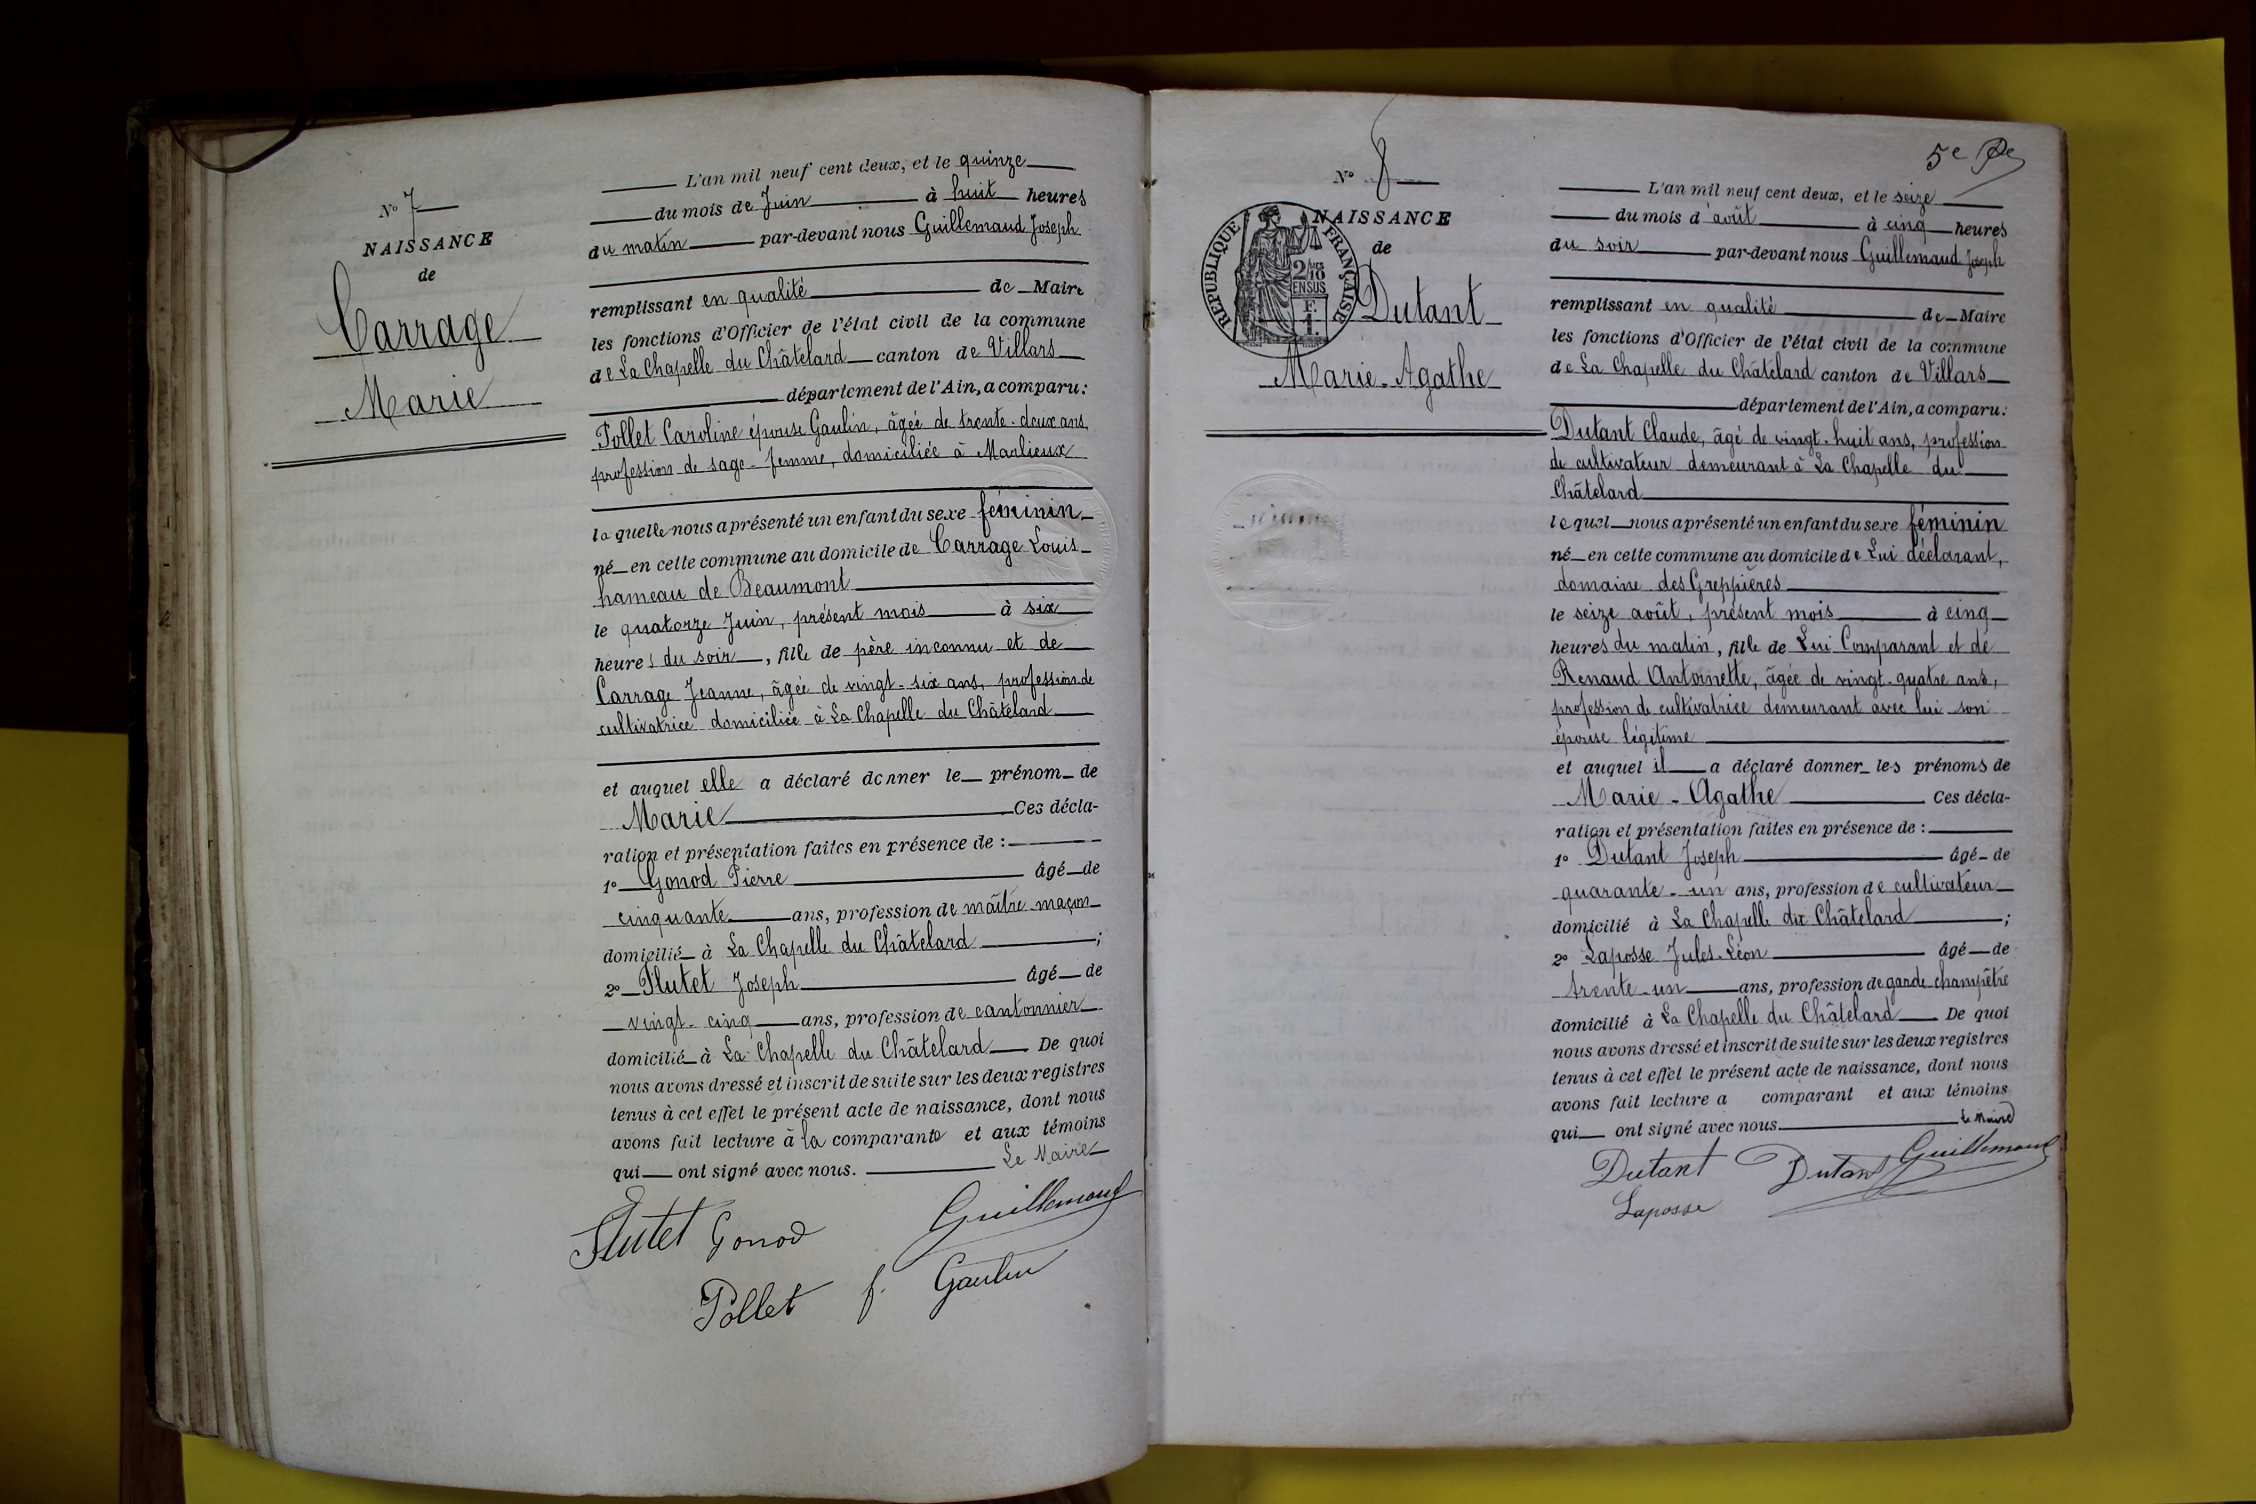 N° 7
NAISSANCE
de
Carrage
Marie
L'an mil neuf cent deux, et le quinze
du mois de Juin à huit heures
du matin par-devant nous Guillemaud Joseph
remplissant en qualité de Maire
les fonctions d'Officier de l'état civil de la commune
de La Chapelle du Châtelard canton de Villars
département de l'Ain, a comparu:
Pollet Caroline épouse Gaulin, âgée de trente-deux ans,
profession de sage-femme, domiciliée à Marlieux
laquelle nous a présenté un enfant du sexe féminin
né en cette commune au domicile de Carrage Louis
hameau de Beaumont
le quatorze Juin, présent mois à six
heures du soir, fille de père inconnu et de
Carrage Jeanne, âgée de vingt-six ans, profession de
cultivatrice domiciliée à La Chapelle du Châtelard
et auquel elle a déclaré donner le prénom de
Marie Ces décla-
ration et présentation faites en présence de :
1° Gonod Pierre âgé de
cinquante ans, profession de maître maçon
domicilié à La Chapelle du Châtelard ;
2° Flutet Joseph âgé de
vingt-cinq ans, profession de cantonnier
domicilié à La Chapelle du Châtelard De quoi
nous avons dressé et inscrit de suite sur les deux registres
tenus à cet effet le présent acte de naissance, dont nous
avons fait lecture à la comparante et aux témoins
qui ont signé avec nous. Le Maire
Flutet Gonod Guillemaud
Pollet f. Gaulin
5e
N° 8
NAISSANCE
de
RÉPUBLIQUE FRANÇAISE
2/10
EN SUS
Dutant
Marie-Agathe
L'an mil neuf cent deux, et le seize
du mois d'août à cinq heures
du soir par-devant nous Guillemaud Joseph
remplissant en qualité de Maire
les fonctions d'Officier de l'état civil de la commune
de La Chapelle du Châtelard canton de Villars
département de l'Ain, a comparu:
Dutant Claude, âgé de vingt-huit ans, profession
de cultivateur demeurant à La Chapelle du
Châtelard
lequel nous a présenté un enfant du sexe féminin
né en cette commune au domicile de Lui déclarant,
domaine des Greppières
le seize août, présent mois à cinq
heures du matin, fille de Lui Comparant et de
Renaud Antoinette, âgée de vingt-quatre ans,
profession de cultivatrice demeurant avec lui son
épouse légitime
et auquel il a déclaré donner les prénoms de
Marie-Agathe Ces décla-
ration et présentation faites en présence de :
1° Dutant Joseph âgé de
quarante-un ans, profession de cultivateur
domicilié à La Chapelle du Châtelard ;
2° Laposse Jules-Léon âgé de
trente-un ans, profession de garde champêtre
domicilié à La Chapelle du Châtelard De quoi
nous avons dressé et inscrit de suite sur les deux registres
tenus à cet effet le présent acte de naissance, dont nous
avons fait lecture a comparant et aux témoins
qui ont signé avec nous. Le Maire
Dutant Dutant Guillemaud
Laposse